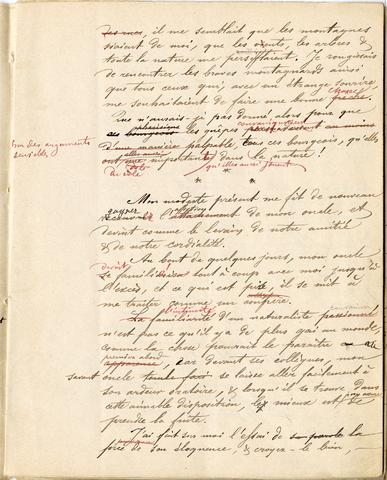 Des rues, il me semblait que les montagnes
riaient de moi, que les vents, les arbres &
toute la nature me persiflaient. Je rougissais
de rencontrer les braves montagnards ainsi
que tous ceux qui, avec un étrange sourire,
me souhaitaient de faire une bonne chasse
Que n'aurais-je pas donné alors pour que
les guêpes
par des arguments
sensibles,
d'une manière palpable, tous ces bourgeois, qu'elles
ont elles aussi une importante dans la nature!
qu'elles aussi jouent
un rôle
*
* *
Mon modeste présent me fit de nouveau
gagner l'affection de mon oncle, et
devint comme le levain de notre amitié
& de notre cordialité.
Au bout de quelques jours, mon oncle
devint familier tout à coup avec moi jusqu'à
l'excès, et ce qui est pire, il se mit à
me traiter comme un compère.
La familiarité d'un naturaliste passionné
n'est pas ce qu'il y a de plus gai au monde,
comme la chose pourrait le paraître au
premier abord, car devant ses collègues, mon
savant oncle se laisse aller facilement à
son ardeur oratoire, & lorsqu'il se trouve dans
cette aimable disposition, le mieux est de
prendre la fuite.
J'ai fait sur moi l'essai de sa parole la
force de son éloquence, & croyez-le bien, -